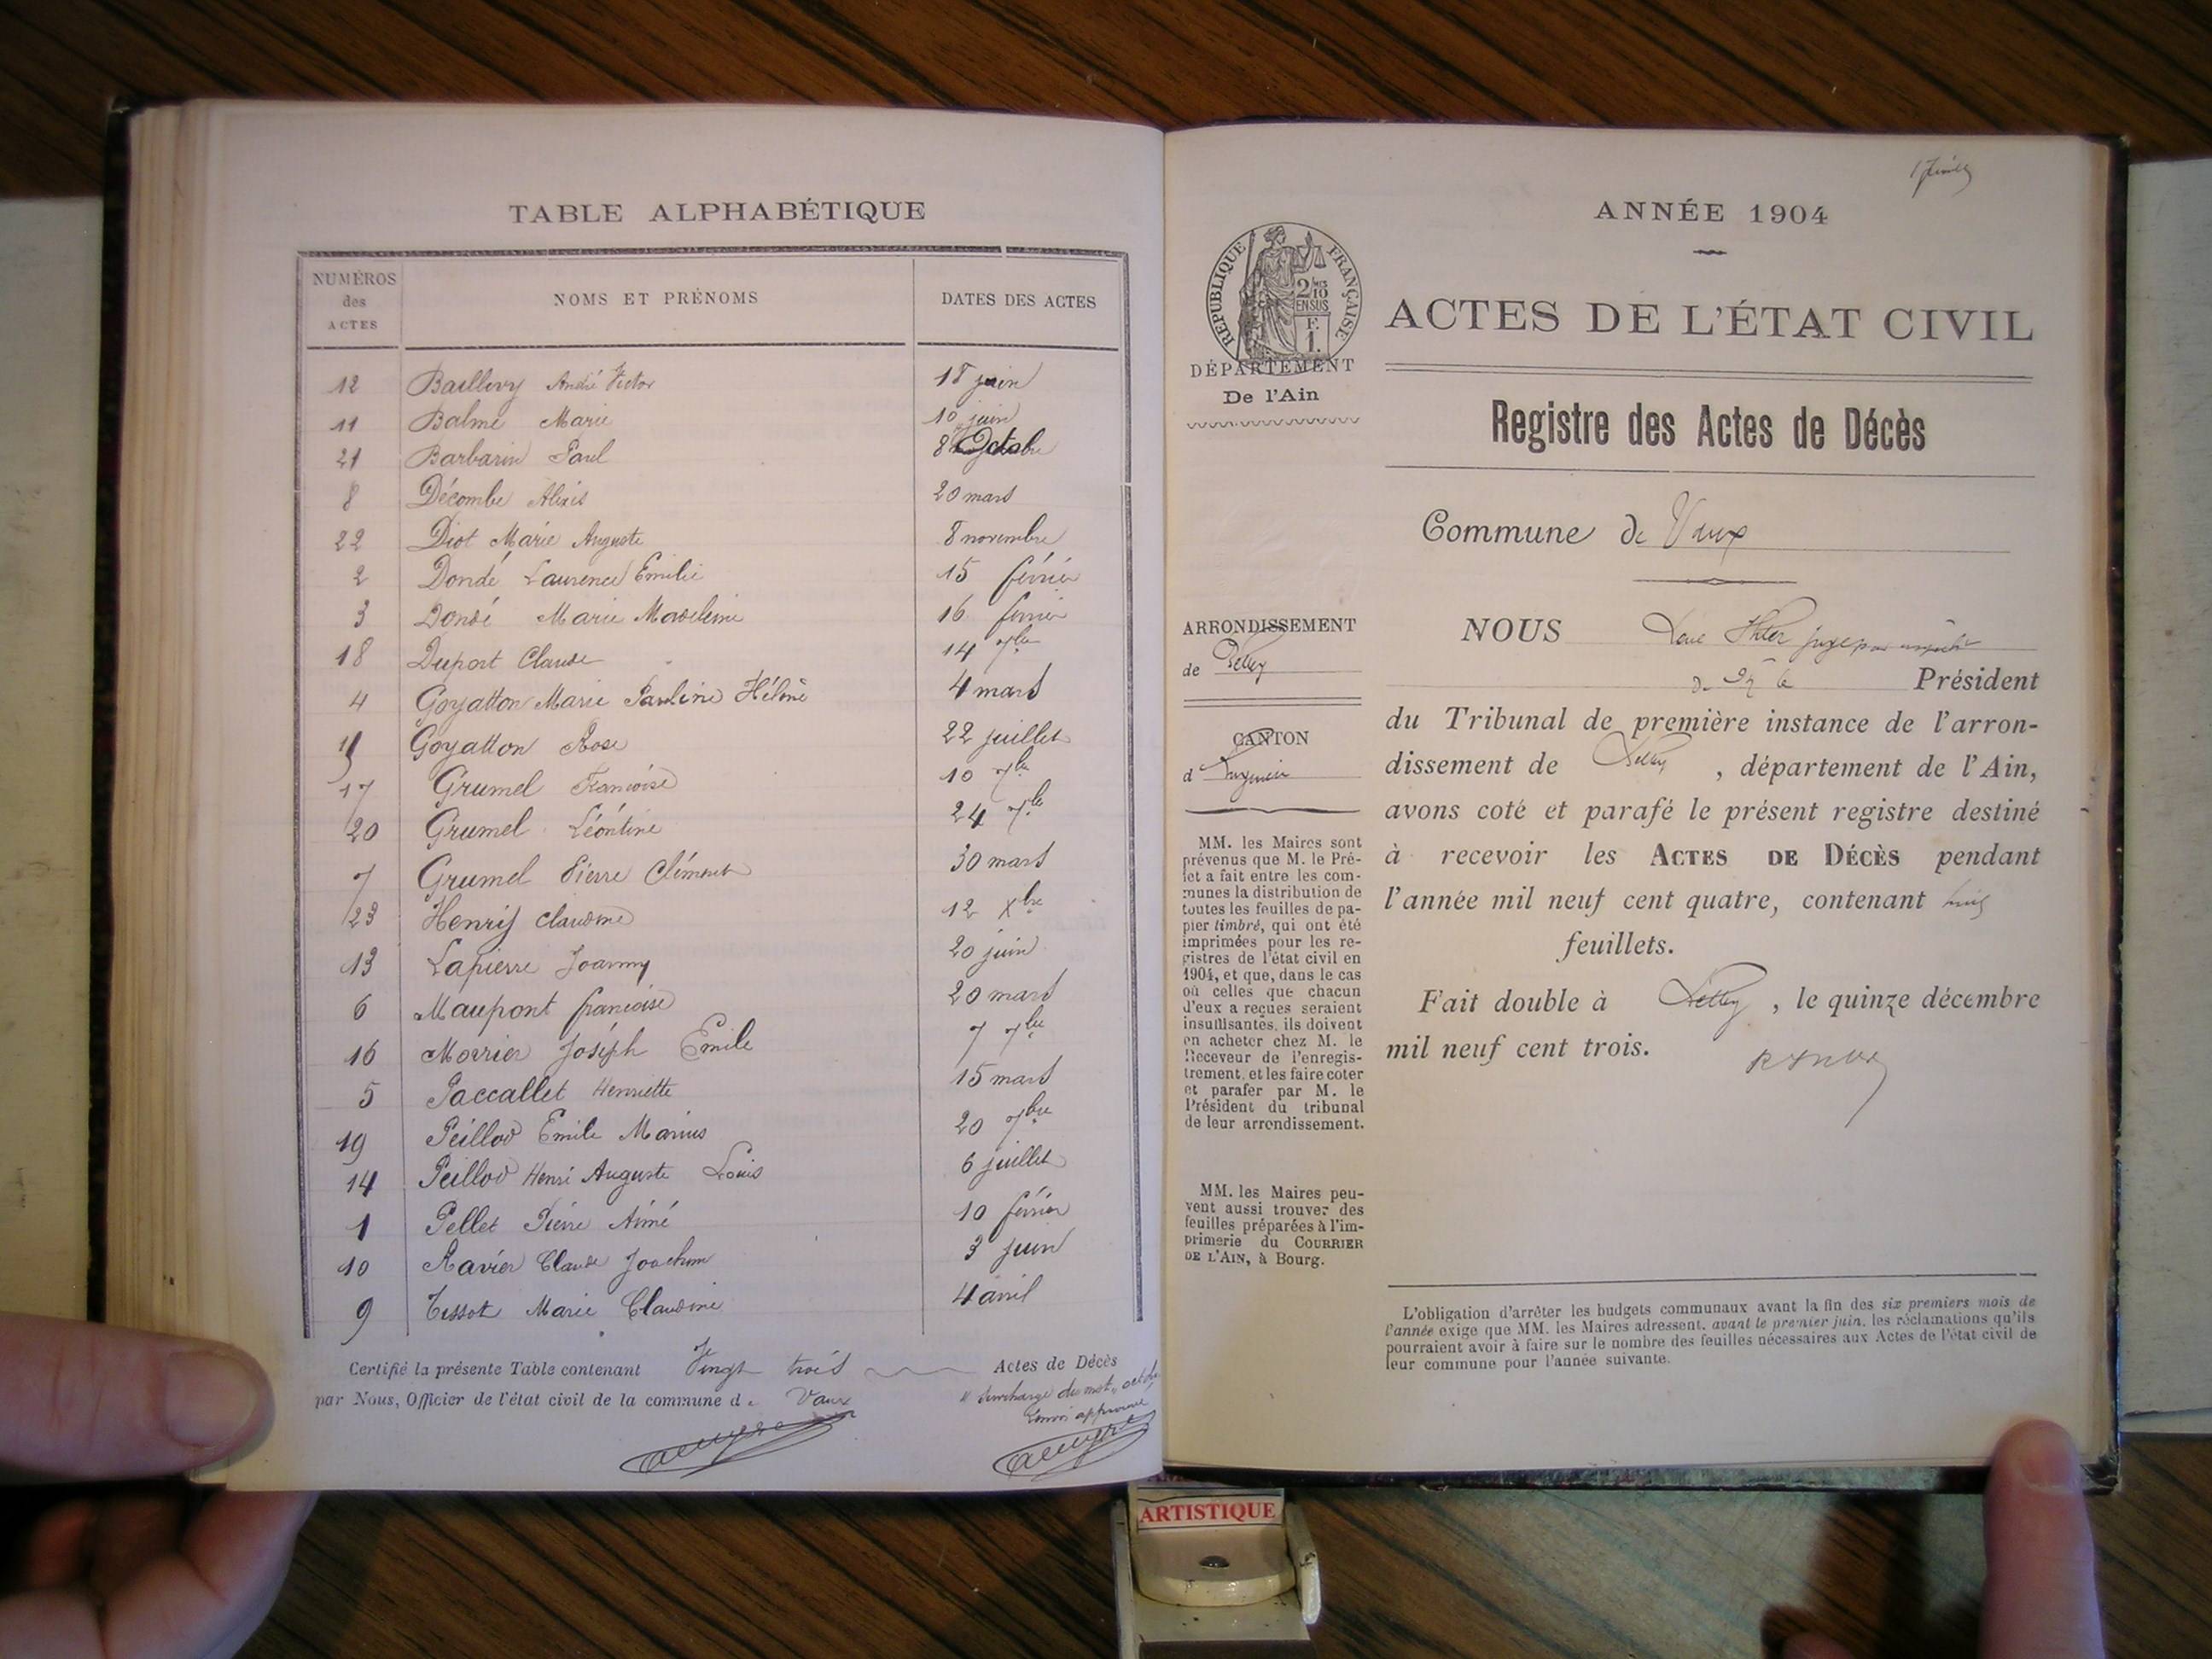 TABLE ALPHABÉTIQUE
NUMÉROS des ACTES NOMS ET PRÉNOMS DATES DES ACTES
12 André Victor 18 juin
11 Balme Marie 10 juin
21 Barbarin Paul 8 Octobre
8 Décombe Alexis 20 mars
22 Diot Marie Auguste 8 novembre
2 Dondé Laurence Emilie 15 février
3 Dondé Marie Madeleine 16 février
18 Duport Claude 14 7bre
4 Goyatton Marie Pauline Hélène 4 mars
15 Goyatton Rose 22 juillet
17 Grumel Francoise 10 7bre
20 Grumel Léontine 24 7bre
7 Grumel Pierre Clément 30 mars
23 Henry Claudine 12 Xbre
13 Lapierre Joanny 20 juin
6 Maupont francoise 20 mars
16 Morrier Joséph Emile 7 7bre
5 Paccallet Henriette 15 mars
19 Peillod Emile Marius 20 7bre
14 Peillod Henri Auguste Louis 6 juillet
1 Pellet Pierre Aimé 10 février
10 Ravier Claude Joachim 3 juin
9 Tissot Marie Claudine 4 avril
Certifié la présente Table contenant Vingt trois Actes de Décès
par Nous, Officier de l'état civil de la commune de Vaux
surcharge du mot
approuvé
ANNÉE 1904
RÉPUBLIQUE FRANÇAISE
2/10 EN SUS
F. 1.
ACTES DE L'ÉTAT CIVIL
DÉPARTEMENT
De l'Ain
Registre des Actes de Décès
Commune de Vaux
ARRONDISSEMENT
de Belley
CANTON
d Lagnieu
MM. les Maires sont
prévenus que M. le Pré-
fet a fait entre les com-
munes la distribution de
toutes les feuilles de pa-
pier timbré, qui ont été
imprimées pour les re-
gistres de l'état civil en
1904, et que, dans le cas
où celles que chacun
d'eux a reçues seraient
insuffisantes, ils doivent
en acheter chez M. le
Receveur de l'enregis-
trement, et les faire coter
et parafer par M. le
Président du tribunal
de leur arrondissement.
MM. les Maires peu-
vent aussi trouver des
feuilles préparées à l'im-
primerie du COURRIER
DE L'AIN, à Bourg.
NOUS juge
Président
du Tribunal de première instance de l'arron-
dissement de Belley, département de l'Ain,
avons coté et parafé le présent registre destiné
à recevoir les ACTES DE DÉCÈS pendant
l'année mil neuf cent quatre, contenant huit
feuillets.
Fait double à Belley, le quinze décembre
mil neuf cent trois.
L'obligation d'arrêter les budgets communaux avant la fin des six premiers mois de
l'année exige que MM. les Maires adressent, avant le premier juin, les réclamations qu'ils
pourraient avoir à faire sur le nombre des feuilles nécessaires aux Actes de l'état civil de
leur commune pour l'année suivante.
ARTISTIQUE